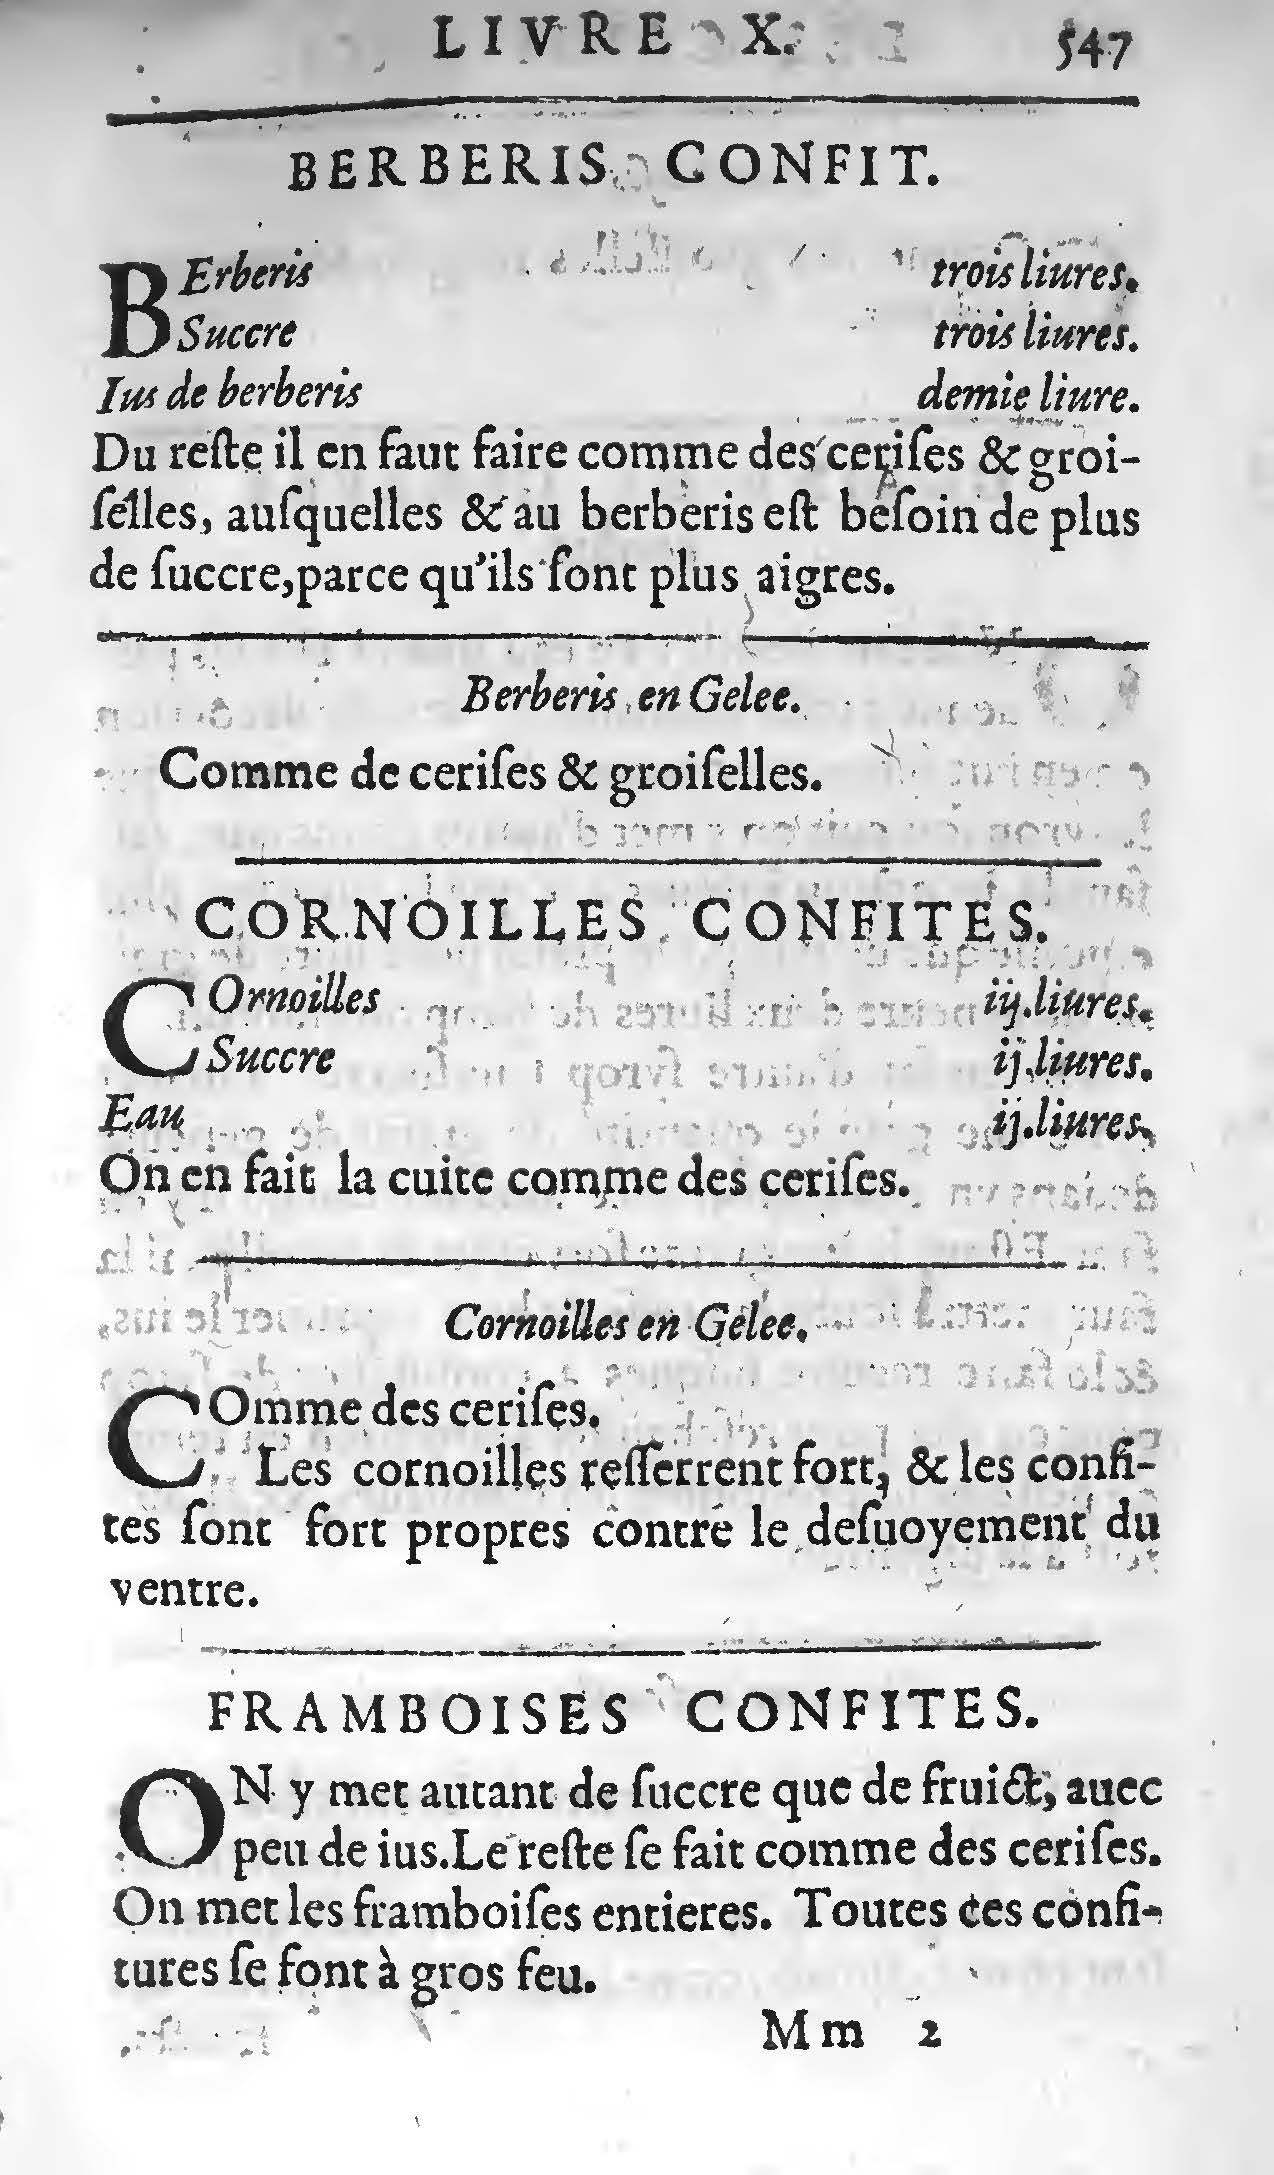 LIVRE X. 547
BERBERIS CONFIT.
BErberis trois liures.
Succre trois liures.
Ius de berberis demie liure.
Du reſte il en faut faire comme des ceriſes & groi-
ſelles, auſquelles & au berberis eſt beſoin de plus
de ſuccre, parce qu'ils ſont plus aigres.
Berberis en Gelee.
Comme de ceriſes & groiſelles.
CORNOILLES CONFITES.
COrnoilles iij. liures.
Succre ij. liures.
Eau ij. liures.
On en fait la cuite comme des ceriſes.
Cornoilles en Gelee.
COmme des ceriſes.
Les cornoilles reſſerrent fort, & les confi-
tes ſont fort propres contre le deſuoyement du
ventre.
FRAMBOISES CONFITES.
ON y met autant de ſuccre que de fruict, auec
peu de ius. Le reſte ſe fait comme des ceriſes.
On met les framboiſes entieres. Toutes ces confi-
tures ſe font à gros feu.
Mm 2